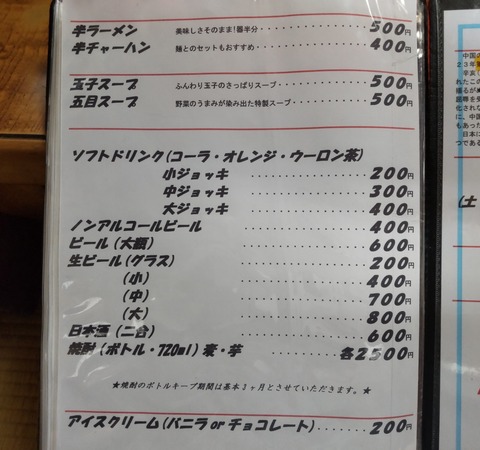 半ラーメン 美味しさそのまま!器半分 500円
半チャーハン 麺とのセットもおすすめ 400円
玉子スープ ふんわり玉子のさっぱりスープ 500円
五目スープ 野菜のうまみが染み出た特製スープ 500円
ソフトドリンク(コーラ・オレンジ・ウーロン茶)
小ジョッキ 200円
中ジョッキ 300円
大ジョッキ 400円
ノンアルコールビール 400円
ビール(大瓶) 600円
生ビール(グラス) 200円
(小) 400円
(中) 700円
(大) 800円
日本酒(二合) 600円
焼酎(ボトル・720ml)麦・芋 各2500円
★焼酎のボトルキープ期間は基本3ヶ月とさせていただきます。★
アイスクリーム(バニラ or チョコレート) 200円
中国の
23年
辛亥
れたこの
に、中国
もあった
日本に
つである
(土